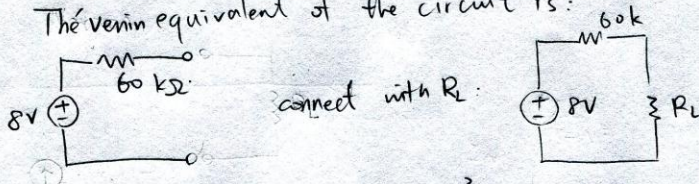 Thévenin equivalent of the circuit is:
60 kΩ
8V
connect with RL:
60k
8V
RL